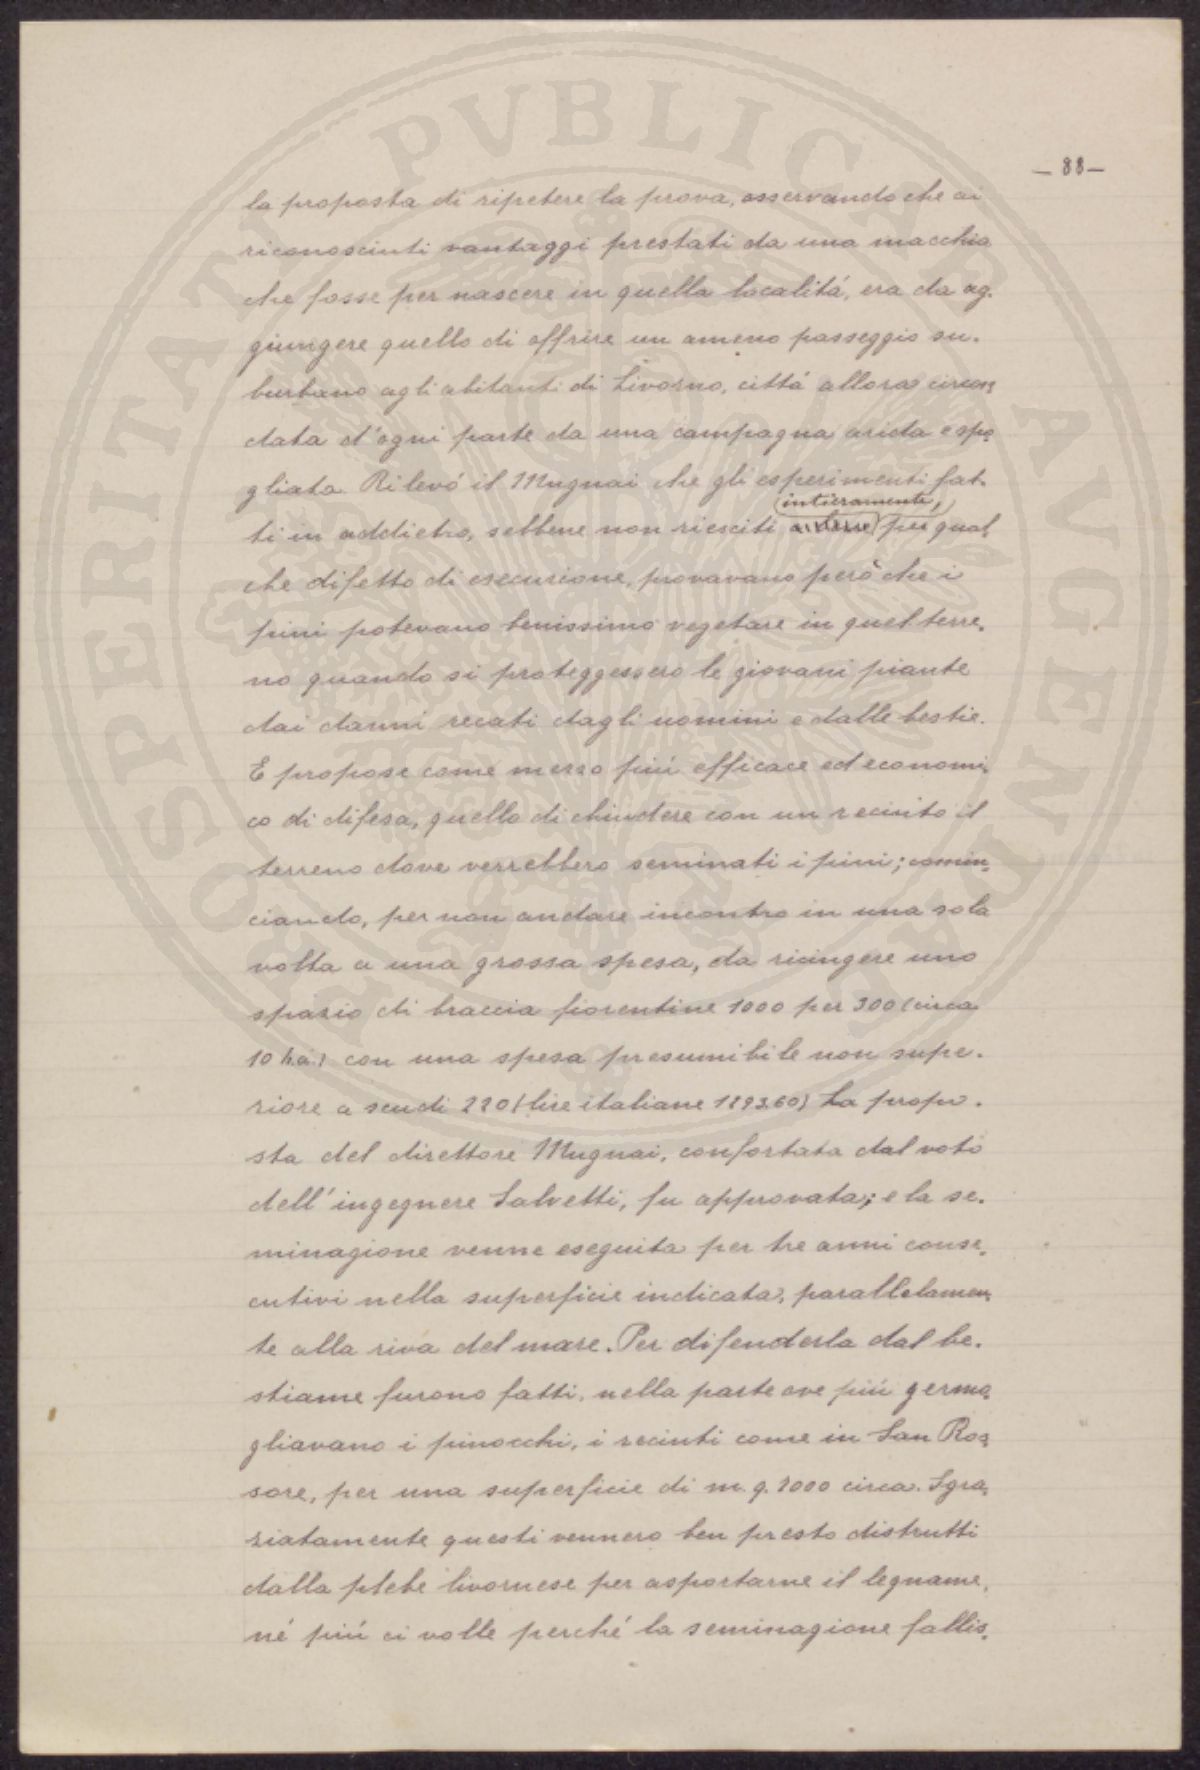 PROSPERITATI PVBLICAE AVGENDAE
— 88 —
la proposta di ripetere la prova, osservando che ai
riconosciuti vantaggi prestati da una macchia
che fosse per nascere in quella localitá, era da ag-
giungere quello di offrire un ameno passeggio su-
burbano agli abitanti di Livorno, cittá allora circon-
data d'ogni parte da una campagna arida e spo-
gliata. Rilevó il Mugnai che gli esperimenti fat-
intieramente,
ti in addietro, sebbene non riesciti per qual-
che difetto di esecuzione, provavano però che i
pini potevano benissimo vegetare in quel terre-
no quando si proteggessero le giovani piante
dai danni recati dagli uomini e dalle bestie.
E propose come mezzo piú efficace ed economi-
co di difesa, quello di chiudere con un recinto il
terreno dove verrebbero seminati i pini; comin-
ciando, per non andare incontro in una sola
volta a una grossa spesa, da ricingere uno
spazio di braccia fiorentine 1000 per 300 (circa
10 h.a.) con una spesa presumibile non supe-
riore a scudi 220 (lire italiane 1293.60) La propo-
sta del direttore Mugnai, confortata dal voto
dell'ingegnere Salvetti, fu approvata; e la se-
minagione venne eseguita per tre anni conse-
cutivi nella superficie indicata, parallelamen-
te alla riva del mare. Per difenderla dal be-
stiame furono fatti, nella parte ove piú germo-
gliavano i pinocchi, i recinti come in San Ros-
sore, per una superficie di m.q. 2000 circa. Sgra-
ziatamente questi vennero ben presto distrutti
dalla plebe livornese per asportarne il legname,
né piú ci volle perché la seminagione fallis-